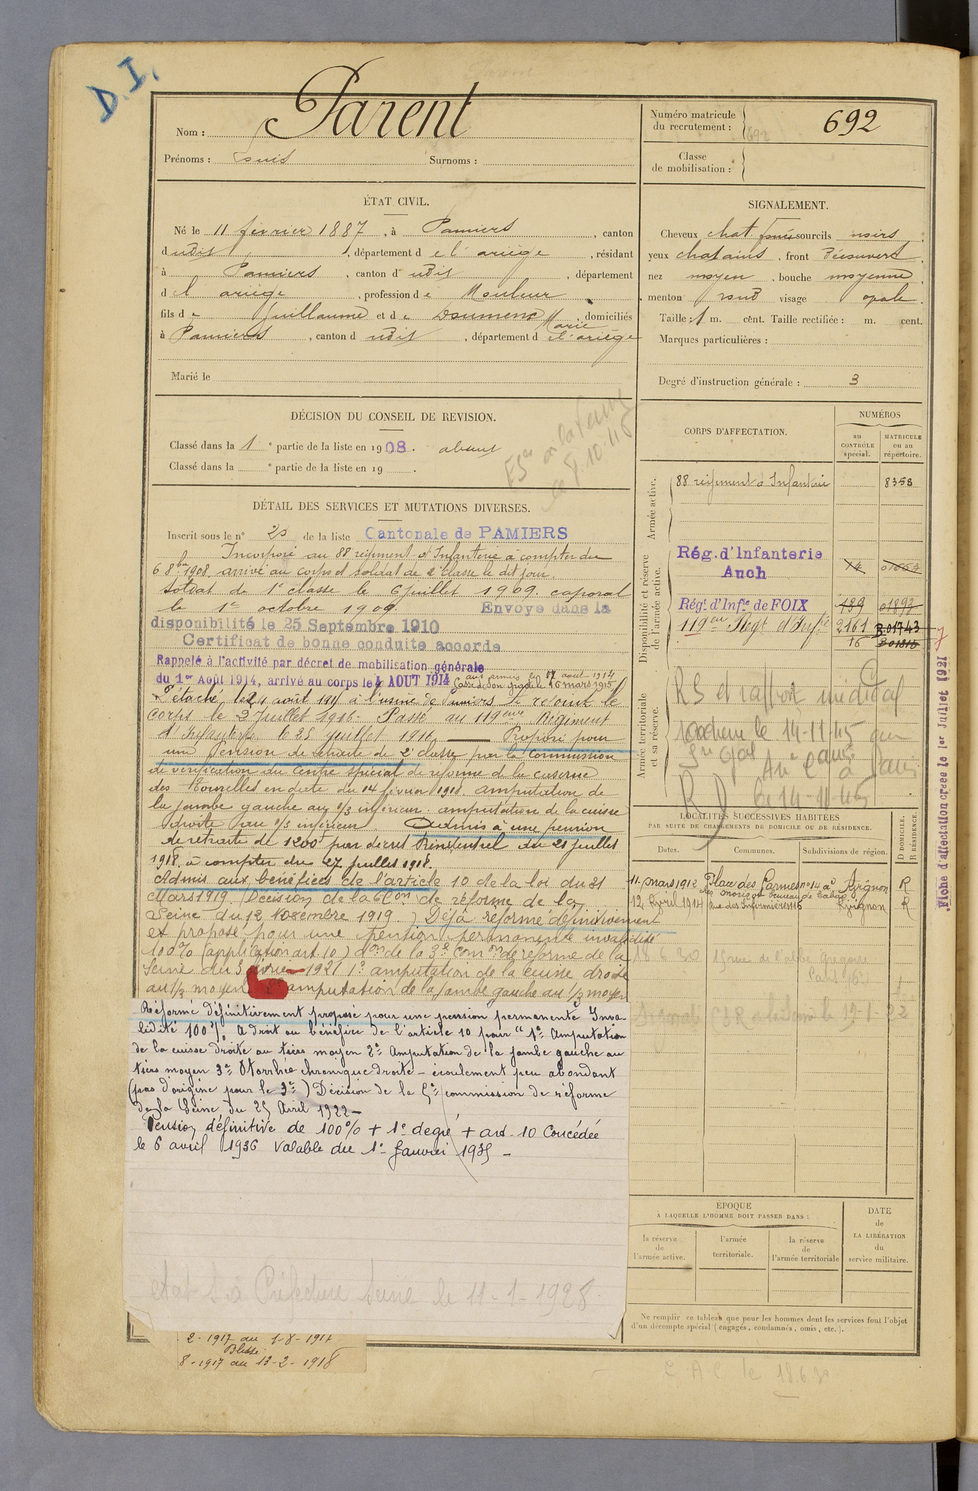 D.I.
Nom : Parent
Prénoms : Louis Surnoms :
Numéro matricule du recrutement : 692
692
Classe de mobilisation :
ÉTAT CIVIL.
Né le 11 février 1887, à Pamiers, canton
d udit, département de l'ariège, résidant
à Pamiers, canton d' udit, département
d l'ariège, profession de Mouleur
fils de Guillaume et de Doumenc Marie, domiciliés
à Pamiers, canton d udit, département d l'ariège
Marié le
SIGNALEMENT.
Cheveux chat. sourcils noirs
yeux chatains, front découvert
nez moyen, bouche moyenne
menton rond visage ovale
Taille : 1 m. cent. Taille rectifiée : m. cent.
Marques particulières :
Degré d'instruction générale : 3
DÉCISION DU CONSEIL DE REVISION.
Classé dans la 1e partie de la liste en 1908. absent
Classé dans la e partie de la liste en 19 .
DÉTAIL DES SERVICES ET MUTATIONS DIVERSES.
Inscrit sous le n° 25 de la liste Cantonale de PAMIERS
Incorporé au 88 régiment d'Infanterie à compter du
6 8bre 1908, arrivé au corps et soldat de 2e classe le dit jour.
Soldat de 1e classe le 6 juillet 1909. caporal
le 1er octobre 1909. Envoyé dans la
disponibilité le 25 Septembre 1910
Certificat de bonne conduite accordé
Rappelé à l'activité par décret de mobilisation générale
du 1er Août 1914, arrivé au corps le 4 AOUT 1914
Cassé de son grade le 16 mars 1915
Détaché le août 1915 à l'usine de Pamiers. Se rejoint le
corps le 3 juillet 1916. Passé au 119ème Régiment
d'Infanterie le 25 juillet 1916. Proposé pour
une Pension de retraite de 2e classe par la commission
de vérification du Centre spécial de réforme de la caserne
des Tourelles en date du 14 février 1918. amputation de
la jambe gauche au 1/3 inférieur. amputation de la cuisse
droite au 1/3 inférieur. Admis à une pension
de retraite de 1200f par décret Présidentiel du 21 juillet
1918, à compter du 27 juillet 1918.
Admis aux bénéfices de l'article 10 de la loi du 31
Mars 1919. (Décision de la 6e Con de réforme de la
Seine du 12 Novembre 1919.) Déjà réformé définitivement
et proposé pour une pension permanente invalidité
100% (application art. 10) don de la 3e Comon de réforme de la
Seine du 3 1921 1° amputation de la cuisse droite
au 1/3 moyen amputation de la jambe gauche au 1/3 moyen
Réformé définitivement proposé pour une pension permanente Inva-
lidité 100% A droit au bénéfice de l'article 10 pour "1° Amputation
de la cuisse droite au tiers moyen 2° Amputation de la jambe gauche au
tiers moyen 3° Otorrhée chronique droite - écoulement peu abondant
(pas d'origine pour le 3°) Décision de la 5e commission de réforme
de la Seine du 25 Avril 1922 -
Pension définitive de 100% + 1e degré + art. 10 Concédée
le 6 avril 1936 valable du 1er Janvier 1935 -
état à Préfecture Seine le 11-1-1928.
2-1917 au 1-8-1917
Blessé
8-1917 au 13-2-1918
CORPS D'AFFECTATION.
NUMÉROS
au CONTRÔLE spécial.
MATRICULE ou au répertoire.
Armée active.
88 régiment d'Infanterie 8358
Disponibilité et réserve de l'armée active.
Rég. d'Infanterie Auch
Rég. d'Infie de FOIX 189 01893
119eme Régt d'Infie 2161 R.01743
Armée territoriale et sa réserve.
RS et rapport médical
LOCALITÉS SUCCESSIVES HABITÉES
PAR SUITE DE CHANGEMENTS DE DOMICILE OU DE RÉSIDENCE.
Dates. Communes. Subdivisions de région. D DOMICILE. R RÉSIDENCE.
11 mars 1912 Place des Carmes n° 14 à Avignon R
12 avril 1914 Rue des Infirmières 116 Avignon R
18 6 30 rue de l'abbé Grégoire
Paris 6e
ÉPOQUE
À LAQUELLE L'HOMME DOIT PASSER DANS :
la réserve de l'armée active.
l'armée territoriale.
la réserve de l'armée territoriale
DATE de LA LIBÉRATION du service militaire.
Ne remplir ce tableau que pour les hommes dont les services font l'objet
d'un décompte spécial (engagés, condamnés, omis, etc.).
Fiche d'affectation créée le 1er Juillet 1921